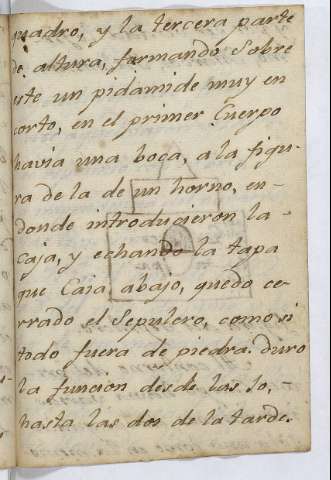 uadro, y la tercera parte
de altura, formando sobre
este un pidamide muy en
corto, en el primer Cuerpo
havia una boca, a la figu-
ra de la de un horno, en-
donde introducieron la
caja, y echando la tapa
que Caia abajo, quedo ce-
rrado el Sepulcro, como si
todo fuera de piedra. duro
la funcion desde las 10,
hasta las dos de la tarde.